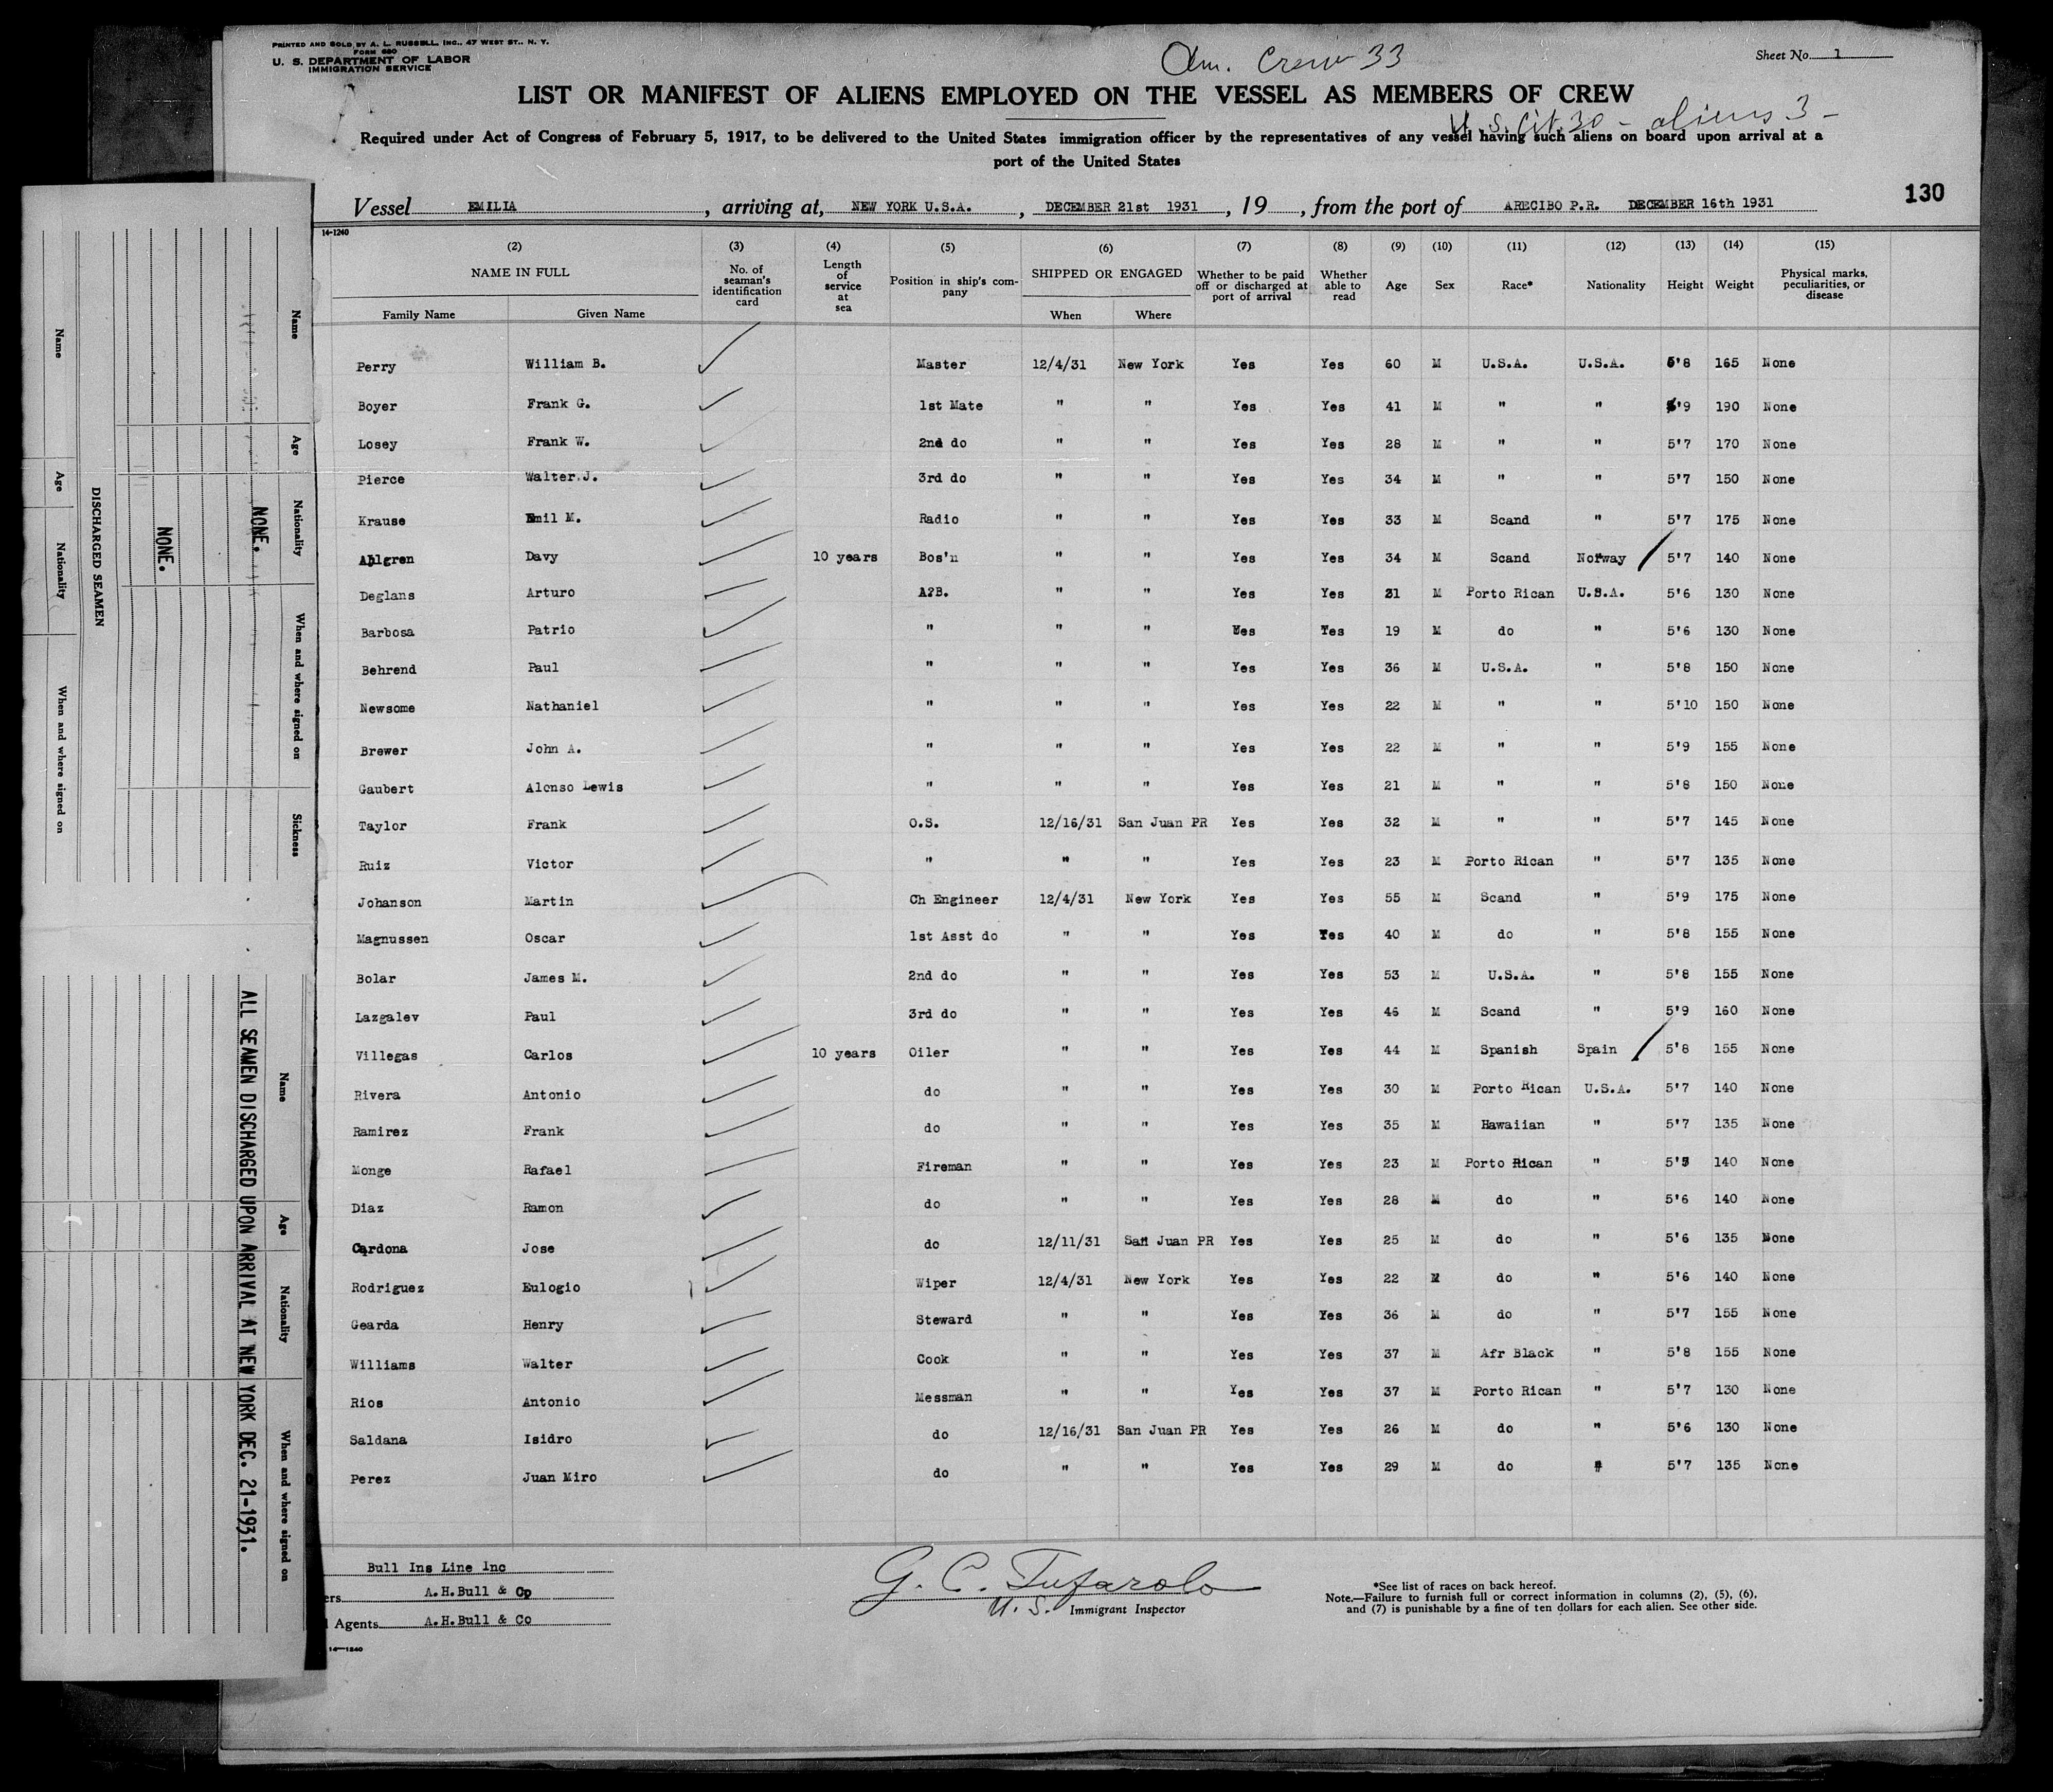 PRINTED AND SOLD BY A. L. RUSSELL, INC., 47 WEST ST., N. Y.
FORM 680
U. S. DEPARTMENT OF LABOR
IMMIGRATION SERVICE
Am. Crew 33
Sheet No. 1
LIST OR MANIFEST OF ALIENS EMPLOYED ON THE VESSEL AS MEMBERS OF CREW
U.S. Cit. 30 - aliens 3 -
Required under Act of Congress of February 5, 1917, to be delivered to the United States immigration officer by the representatives of any vessel having such aliens on board upon arrival at a
port of the United States
130
Vessel EMILIA, arriving at, NEW YORK U.S.A., DECEMBER 21st 1931, 19, from the port of ARECIBO P.R. DECEMBER 16th 1931
14-1240
(2) (3) (4) (5) (6) (7) (8) (9) (10) (11) (12) (13) (14) (15)
NAME IN FULL No. of seaman's identification card Length of service at sea Position in ship's company SHIPPED OR ENGAGED Whether to be paid off or discharged at port of arrival Whether able to read Age Sex Race* Nationality Height Weight Physical marks, peculiarities, or disease
Family Name Given Name When Where
Perry William B. Master 12/4/31 New York Yes Yes 60 M U.S.A. U.S.A. 5'8 165 None
Boyer Frank G. 1st Mate " " Yes Yes 41 M " " 5'9 190 None
Losey Frank W. 2nd do " " Yes Yes 28 M " " 5'7 170 None
Pierce Walter J. 3rd do " " Yes Yes 34 M " " 5'7 150 None
Krause Emil M. Radio " " Yes Yes 33 M Scand " 5'7 175 None
Ahlgren Davy 10 years Bos'n " " Yes Yes 34 M Scand Norway 5'7 140 None
Deglans Arturo A?B. " " Yes Yes 31 M Porto Rican U.S.A. 5'6 130 None
Barbosa Patrio " " " Yes Yes 19 M do " 5'6 130 None
Behrend Paul " " " Yes Yes 36 M U.S.A. " 5'8 150 None
Newsome Nathaniel " " " Yes Yes 22 M " " 5'10 150 None
Brewer John A. " " " Yes Yes 22 M " " 5'9 155 None
Gaubert Alonso Lewis " " " Yes Yes 21 M " " 5'8 150 None
Taylor Frank O.S. 12/16/31 San Juan PR Yes Yes 32 M " " 5'7 145 None
Ruiz Victor " " " Yes Yes 23 M Porto Rican " 5'7 135 None
Johanson Martin Ch Engineer 12/4/31 New York Yes Yes 55 M Scand " 5'9 175 None
Magnussen Oscar 1st Asst do " " Yes Yes 40 M do " 5'8 155 None
Bolar James M. 2nd do " " Yes Yes 53 M U.S.A. " 5'8 155 None
Lazgalev Paul 3rd do " " Yes Yes 46 M Scand " 5'9 160 None
Villegas Carlos 10 years Oiler " " Yes Yes 44 M Spanish Spain 5'8 155 None
Rivera Antonio do " " Yes Yes 30 M Porto Rican U.S.A. 5'7 140 None
Ramirez Frank do " " Yes Yes 35 M Hawaiian " 5'7 135 None
Monge Rafael Fireman " " Yes Yes 23 M Porto Rican " 5'5 140 None
Diaz Ramon do " " Yes Yes 28 M do " 5'6 140 None
Cardona Jose do 12/11/31 San Juan PR Yes Yes 25 M do " 5'6 135 None
Rodriguez Eulogio Wiper 12/4/31 New York Yes Yes 22 M do " 5'6 140 None
Gearda Henry Steward " " Yes Yes 36 M do " 5'7 155 None
Williams Walter Cook " " Yes Yes 37 M Afr Black " 5'8 155 None
Rios Antonio Messman " " Yes Yes 37 M Porto Rican " 5'7 130 None
Saldana Isidro do 12/16/31 San Juan PR Yes Yes 26 M do " 5'6 130 None
Perez Juan Miro do " " Yes Yes 29 M do " 5'7 135 None
Bull Ins Line Inc
ers A.H.Bull & Co
Agents A.H.Bull & Co
14-1240
G. C. Tufarolo
U. S. Immigrant Inspector
*See list of races on back hereof.
Note.—Failure to furnish full or correct information in columns (2), (5), (6),
and (7) is punishable by a fine of ten dollars for each alien. See other side.
Name Age Nationality When and where signed on Sickness
NONE.
NONE.
DISCHARGED SEAMEN
Name Age Nationality When and where signed on
Name Age Nationality When and where signed on
ALL SEAMEN DISCHARGED UPON ARRIVAL AT NEW YORK DEC. 21-1931.